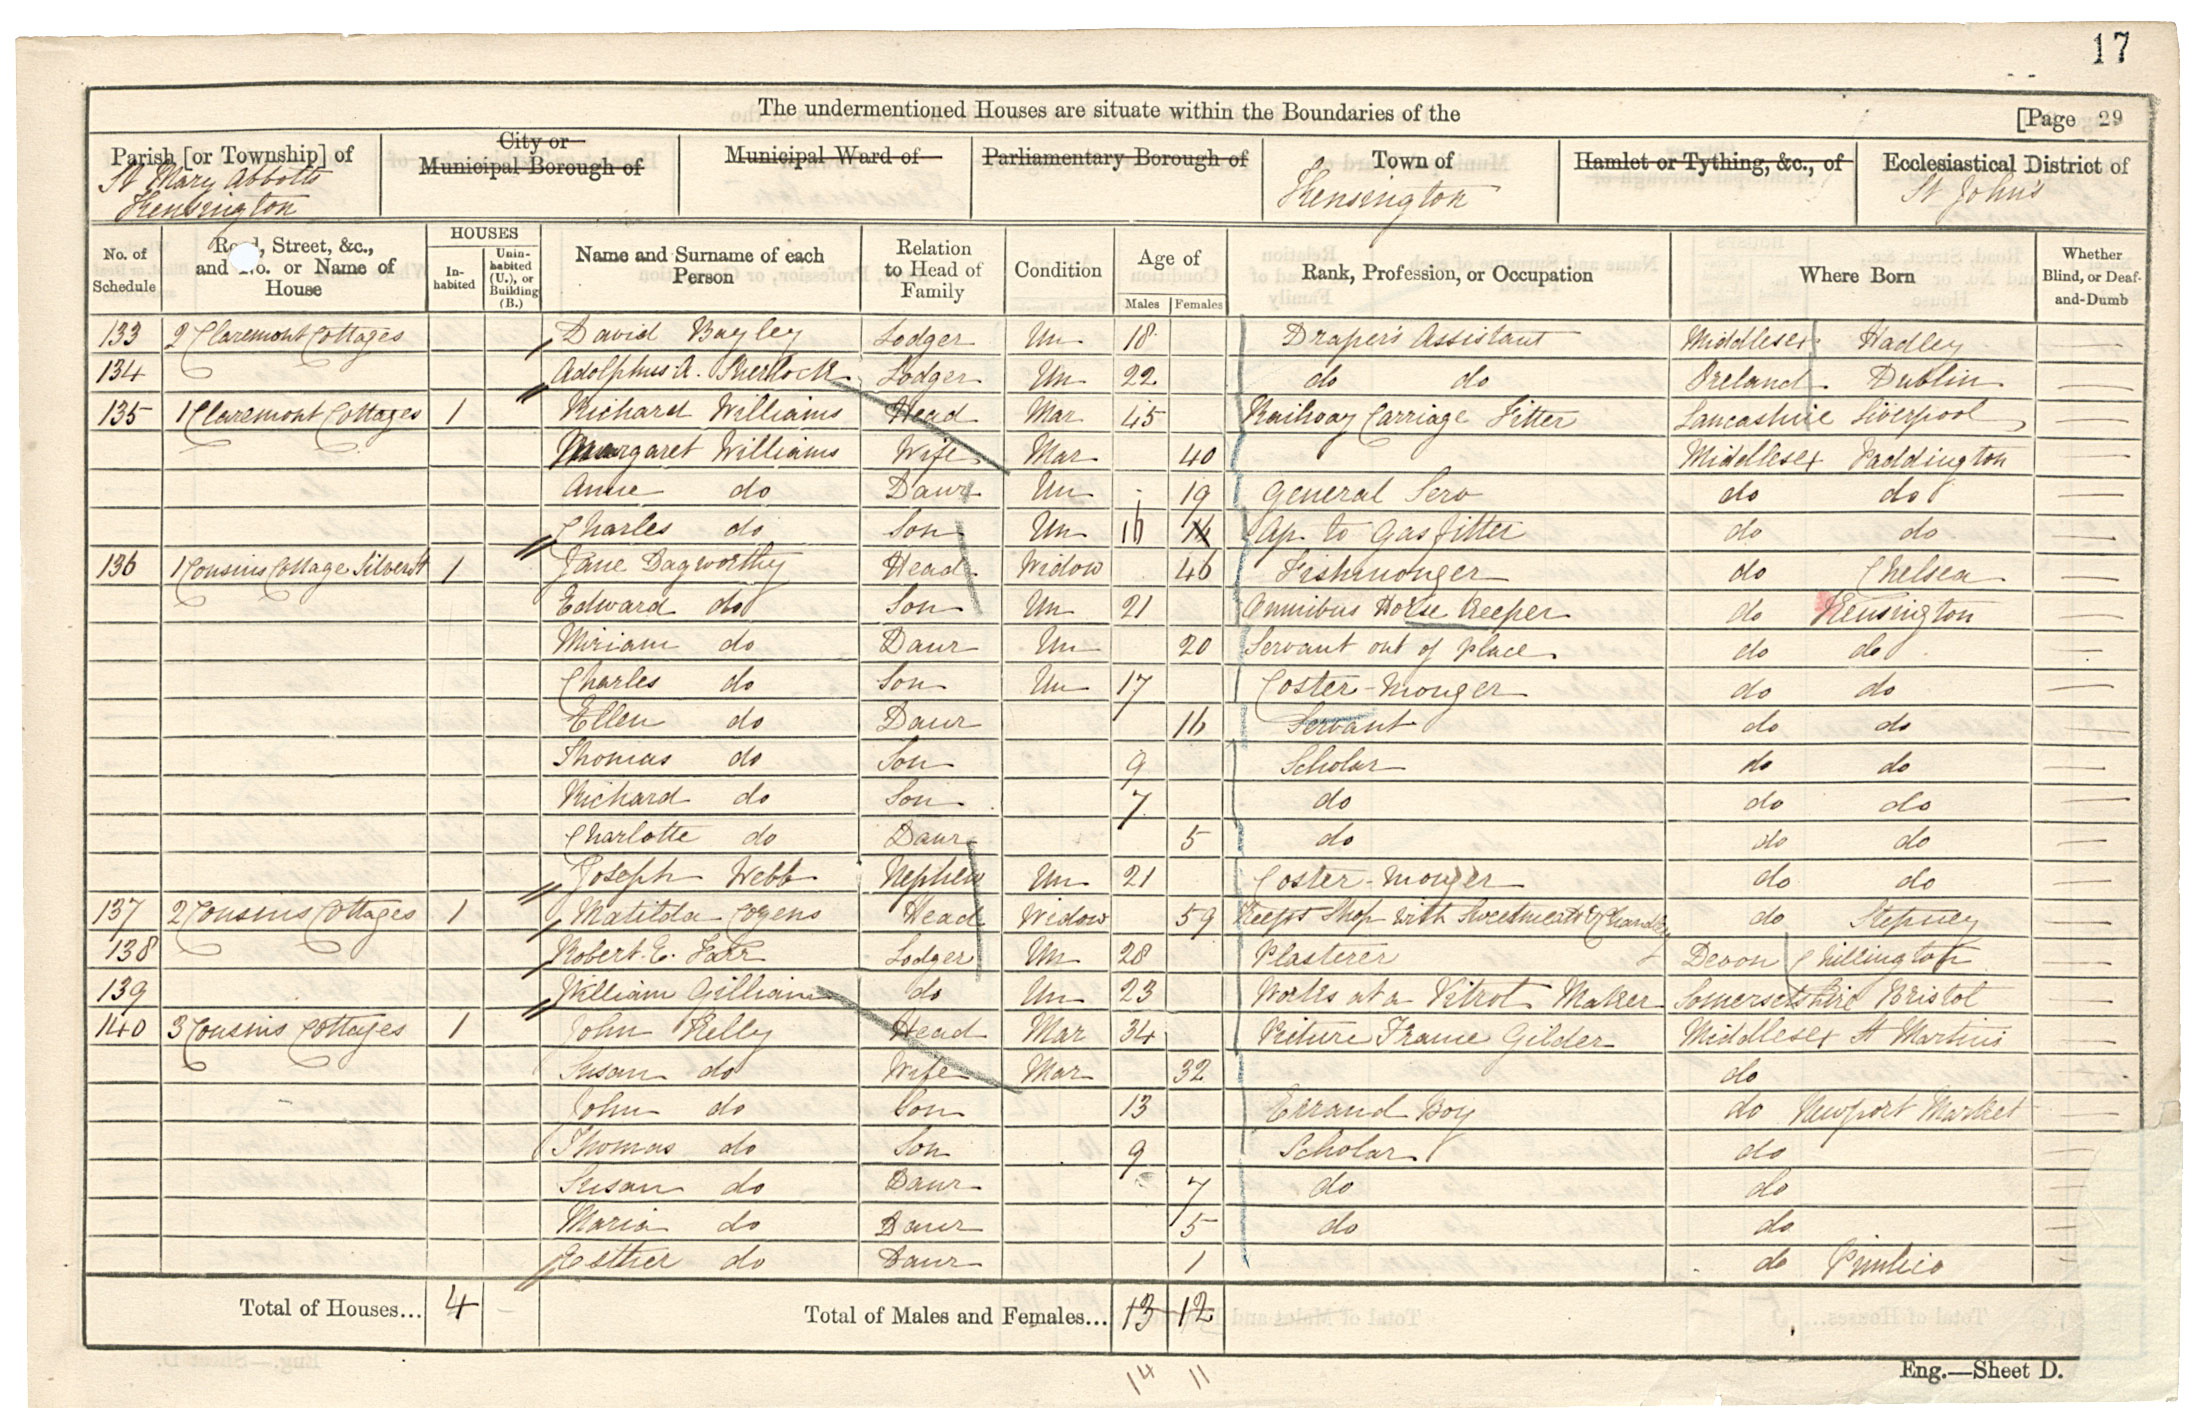 17
The undermentioned Houses are situate within the Boundaries of the [Page 29
Parish [or Township] of City or Municipal Borough of Municipal Ward of Parliamentary Borough of Town of Hamlet or Tything, &c., of Ecclesiastical District of
St Mary Abbotts Kensington Kensington St John's
No. of Schedule Road, Street, &c., and No. or Name of House HOUSES Inhabited Uninhabited (U.), or Building (B.) Name and Surname of each Person Relation to Head of Family Condition Age of Males Females Rank, Profession, or Occupation Where Born Whether Blind, or Deaf-and-Dumb
133 2 Claremont Cottages David Bayley Lodger Un 18 Draper's Assistant Middlesex Hadley
134 Adolphus A. Sherlock Lodger Un 22 do do Ireland Dublin
135 1 Claremont Cottages 1 Richard Williams Head Mar 45 Railway Carriage Fitter Lancashire Liverpool
Margaret Williams Wife Mar 40 Middlesex Paddington
Anne do Daur Un 19 General Serv do do
Charles do Son Un 16 16 Ap. to Gasfitter do do
136 1 Cousins Cottage Silver St 1 Jane Dagworthy Head Widow 46 Fishmonger do Chelsea
Edward do Son Un 21 Omnibus Horse Keeper do Kensington
Miriam do Daur Un 20 Servant out of place do do
Charles do Son Un 17 Coster-monger do do
Ellen do Daur 16 Servant do do
Thomas do Son 9 Scholar do do
Richard do Son 7 do do do
Charlotte do Daur 5 do do do
Joseph Webb Nephew Un 21 Coster-monger do do
137 2 Cousins Cottages 1 Matilda Cozens Head Widow 59 Keeps Shop with Sweetmeats & do Stepney
138 Robert E. Farr Lodger Un 28 Plasterer Devon Chillington
139 William Gilliam do Un 23 Works at a Vitrol Maker Somersetshire Bristol
140 3 Cousins Cottages 1 John Kelly Head Mar 34 Picture Frame Gilder Middlesex St Martins
Susan do Wife Mar 32 do
John do Son 13 Errand Boy do Newport Market
Thomas do Son 9 Scholar do
Susan do Daur 7 do do
Maria do Daur 5 do do
Esther do Daur 1 do Pimlico
Total of Houses... 4 Total of Males and Females... 13 12
14 11
Eng.—Sheet D.